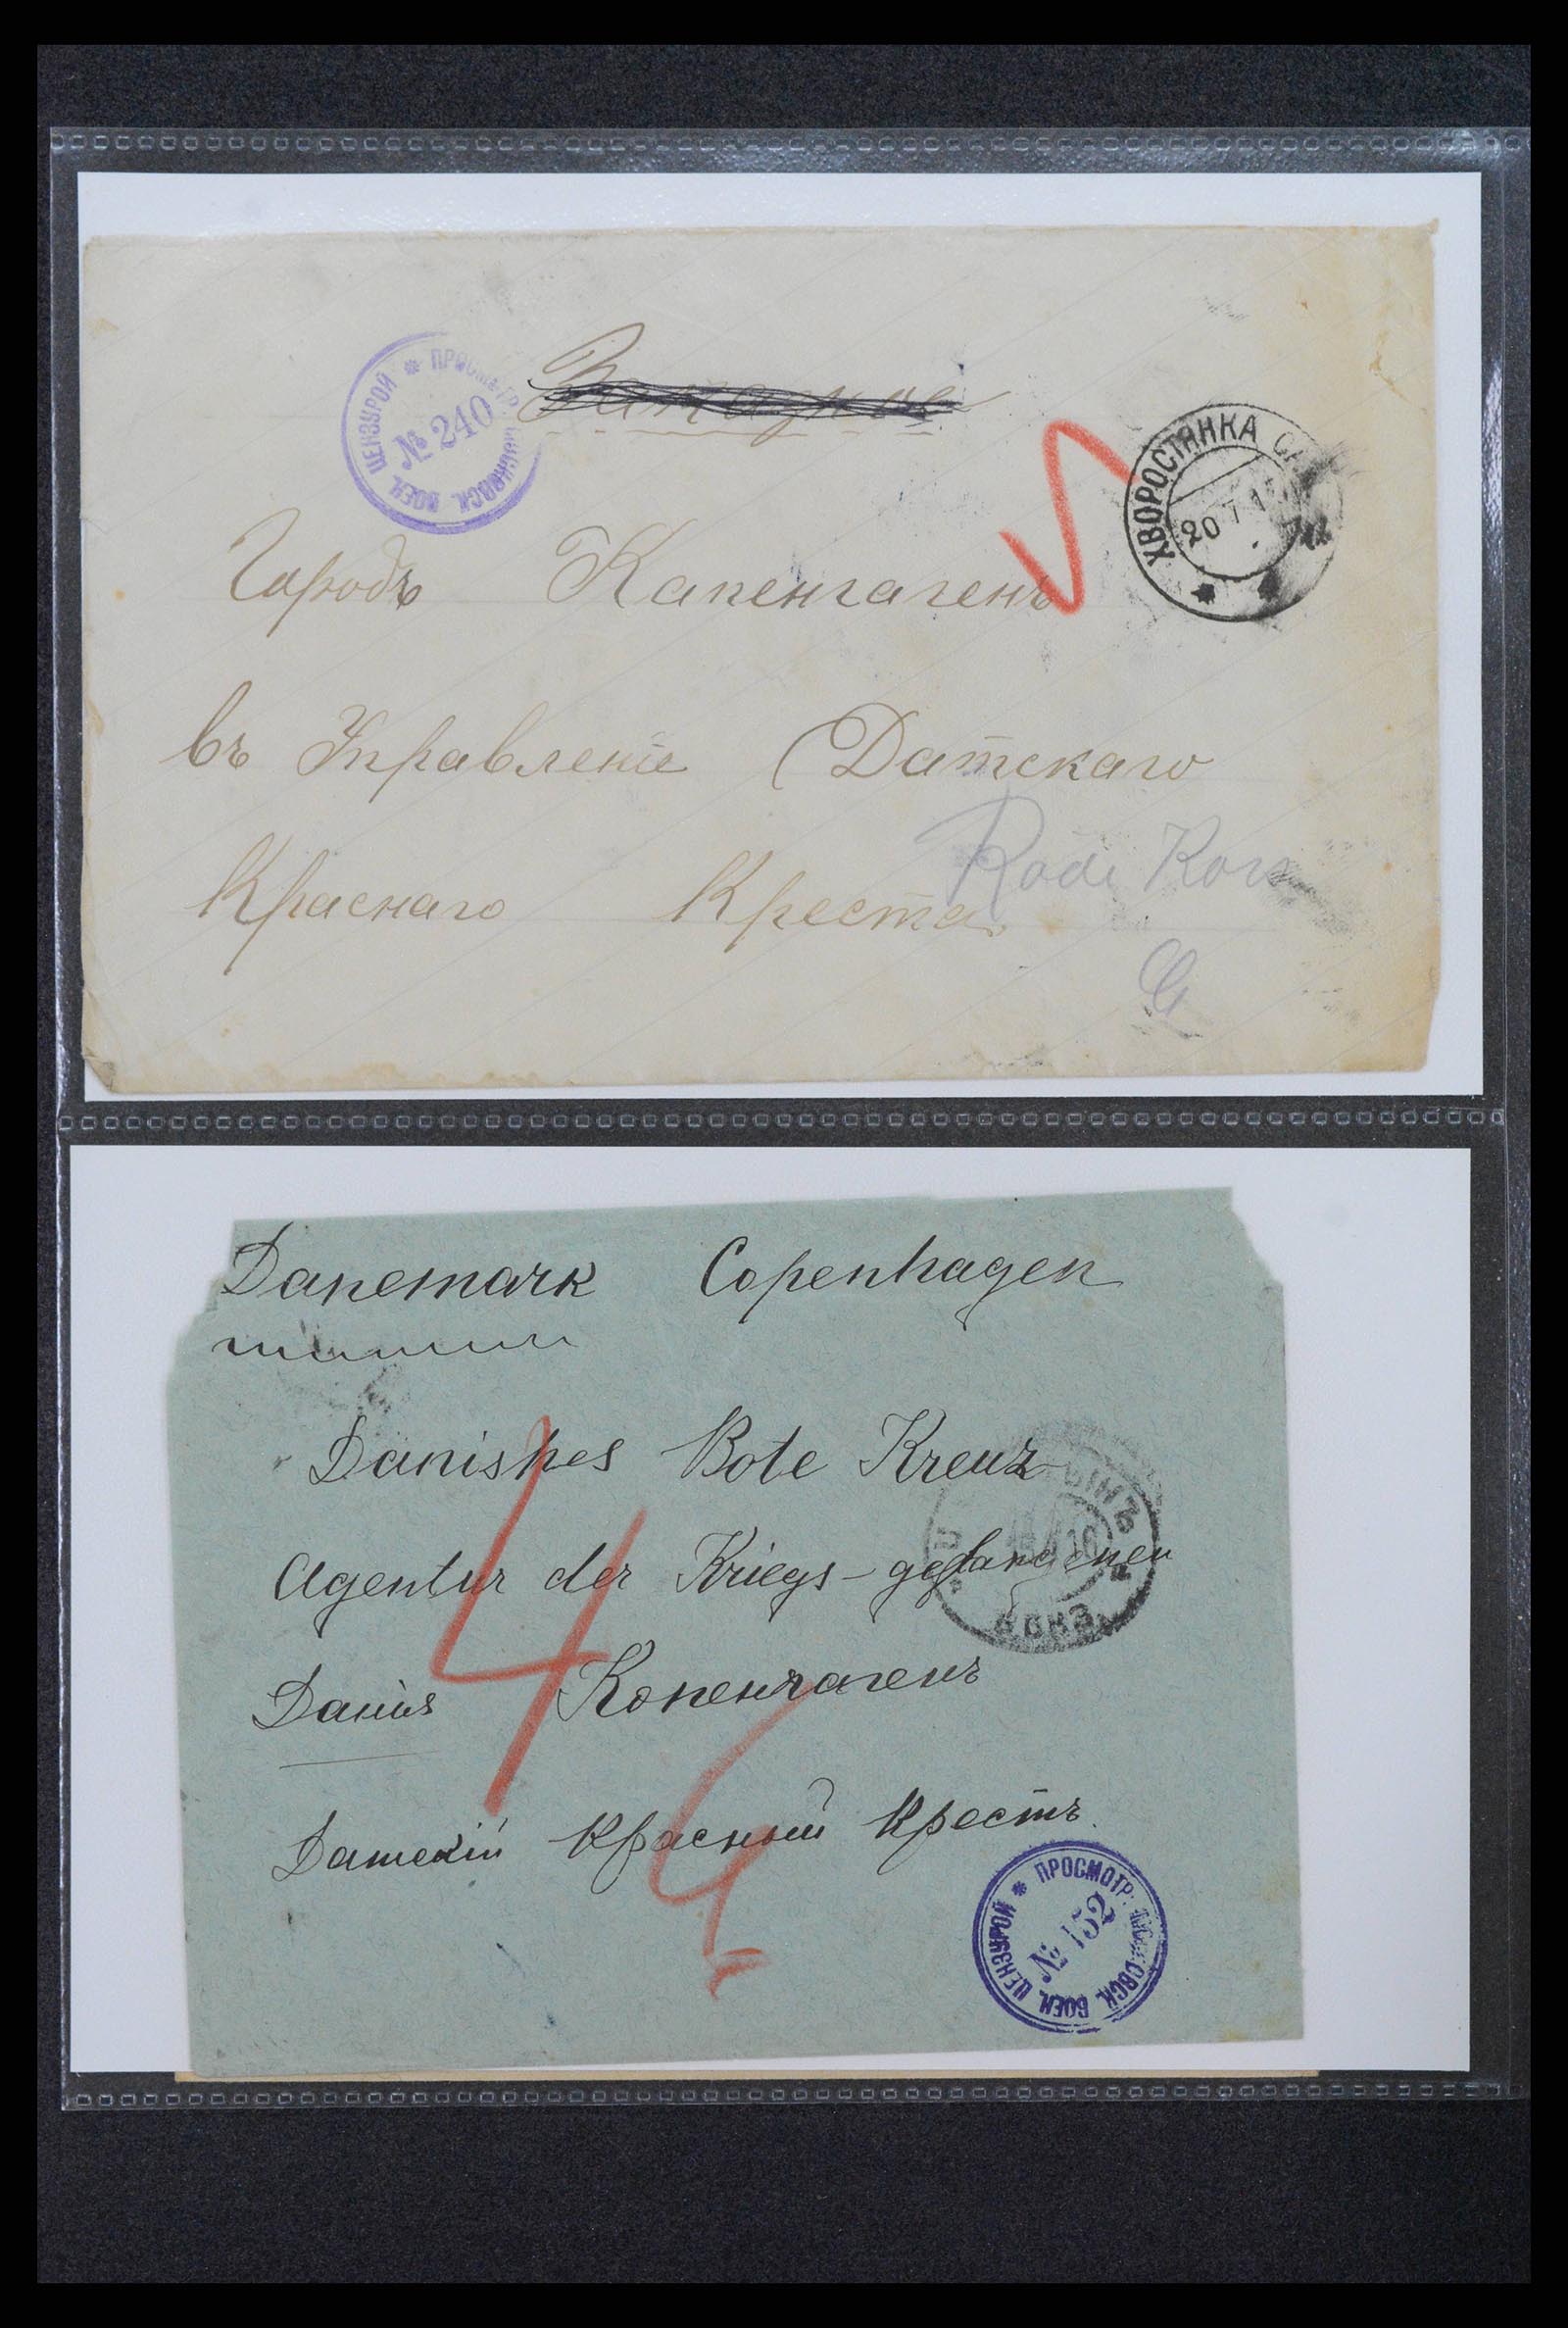 Заказное
ПРОСМОТР. МОСКОВСК. ВОЕН. ЦЕНЗУРОЙ
№ 240
ХВОРОСТЯНКА
20
Городъ Капенгагенъ
въ Управленіе Датскаго
Краснаго Креста
Danemark Copenhagen
Danishes Bote Kreuz
Agentur der Kriegs-gefangenen
Данія Копенгагенъ
Датскій Красный Крестъ.
ПРОСМОТР. МОСКОВСК. ВОЕН. ЦЕНЗУРОЙ
№ 152